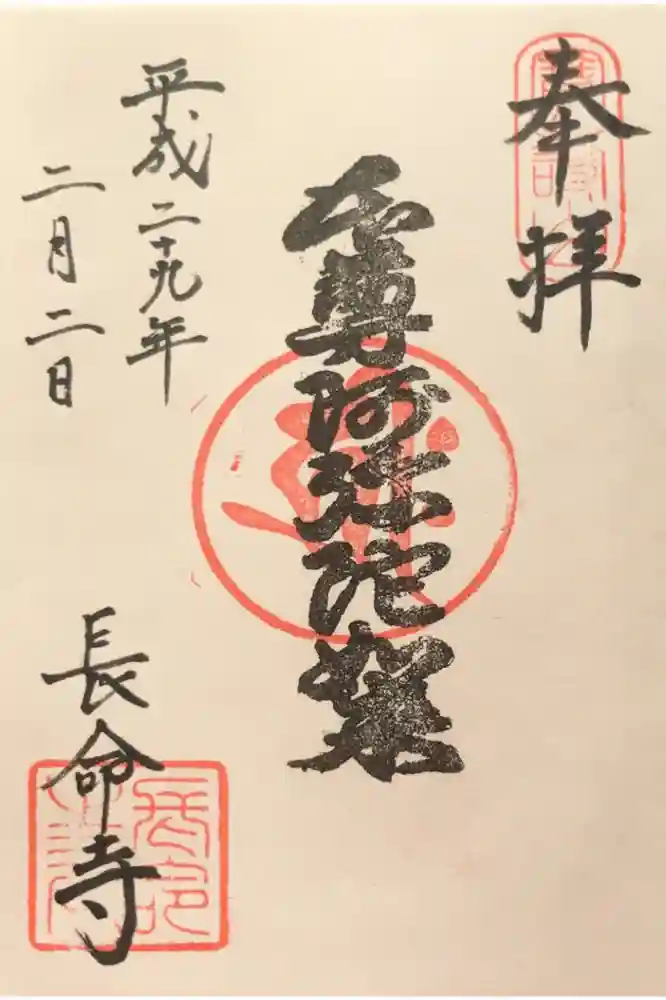 奉拝
本尊阿弥陀如来
平成二十九年
二月二日
長命寺